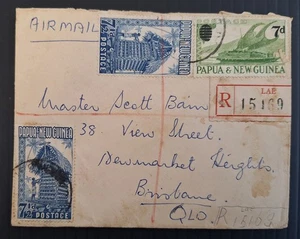 AIRMAIL
7½d
POSTAGE
PAPUA-NEW GUINEA
7d
PAPUA & NEW GUINEA
R
LAE
15169
Master Scott Bain
38 View Street.
Newmarket Heights.
Brisbane
QLD.
PAPUA-NEW GUINEA
7½d
POSTAGE